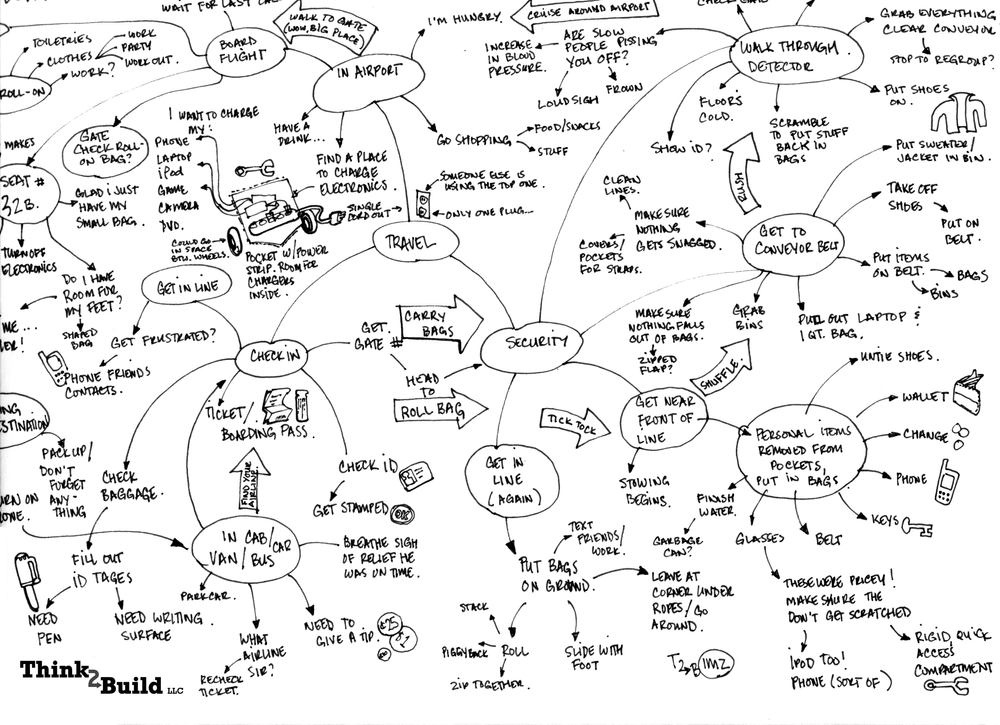 WAIT FOR LAST CA
WALK TO GATE
(WOW, BIG PLACE)
I'M HUNGRY.
CRUISE AROUND AIRPORT
CHECK
GRAB EVERYTHING
CLEAR CONVEYOR
STOP TO REGROUP?
TOILETRIES
CLOTHES
WORK
PARTY
WORK OUT.
WORK?
ROLL-ON
BOARD
FLIGHT
IN AIRPORT
INCREASE
IN BLOOD
PRESSURE.
ARE SLOW
PEOPLE PISSING
YOU OFF?
LOUD SIGH
FROWN
WALK THROUGH
DETECTOR
PUT SHOES
ON.
FLOORS
COLD.
SHOW ID?
SCRAMBLE
TO PUT STUFF
BACK IN
BAGS
RUSH
PUT SWEATER/
JACKET IN BIN.
MAKES
GATE
CHECK ROLL-
ON BAG?
SEAT #
32B.
GLAD I JUST
HAVE MY
SMALL BAG.
I WANT TO CHARGE
MY:
PHONE
LAPTOP
IPOD
GAME
CAMERA
DVD.
HAVE A
DRINK...
FIND A PLACE
TO CHARGE
ELECTRONICS.
GO SHOPPING
FOOD/SNACKS
STUFF
SOMEONE ELSE IS
USING THE TOP ONE.
ONLY ONE PLUG...
SINGLE
CORD OUT
COULD GO
IN SPACE
BTW. WHEELS.
POCKET W/POWER
STRIP. ROOM FOR
CHARGERS
INSIDE.
TRAVEL
CLEAN
LINES.
MAKE SURE
NOTHING
GETS SNAGGED.
COVERS/
POCKETS
FOR STRAPS.
GET TO
CONVEYOR BELT
TAKE OFF
SHOES
PUT ON
BELT.
PUT ITEMS
ON BELT.
BAGS
BINS
TURN OFF
ELECTRONICS
DO I HAVE
ROOM FOR
MY FEET?
SHAPED
BAG
GET IN LINE
GET FRUSTRATED?
PHONE FRIENDS
CONTACTS.
CHECK IN
GET
GATE #
CARRY
BAGS
SECURITY
HEAD
TO
ROLL BAG
MAKE SURE
NOTHING FALLS
OUT OF BAGS.
ZIPPED
FLAP?
GRAB
BINS
PULL OUT LAPTOP &
1 QT. BAG.
SHUFFLE.
UNTIE SHOES.
WALLET
CHANGE
PHONE
KEYS
BELT
GLASSES
ME...
TICKET/
BOARDING PASS.
TICK TOCK
GET NEAR
FRONT OF
LINE
PERSONAL ITEMS
REMOVED FROM
POCKETS,
PUT IN BAGS
PACK UP/
DON'T
FORGET
ANY-
THING
CHECK
BAGGAGE.
FIND YOUR
AIRLINE.
CHECK ID
GET STAMPED
OK
GET IN
LINE
(AGAIN)
STOWING
BEGINS.
FINISH
WATER.
GARBAGE
CAN?
IN CAB/CAR
VAN/BUS
BREATHE SIGH
OF RELIEF HE
WAS ON TIME.
TEXT
FRIENDS/
WORK.
PUT BAGS
ON GROUND.
LEAVE AT
CORNER UNDER
ROPES/GO
AROUND.
FILL OUT
ID TAGES
NEED
PEN
NEED WRITING
SURFACE
PARK CAR.
WHAT
AIRLINE
SIR?
RECHECK
TICKET.
NEED TO
GIVE A TIP.
STACK
PIGGYBACK
ROLL
ZIP TOGETHER.
SLIDE WITH
FOOT
THESE WERE PRICEY!
MAKE SHURE THE
DON'T GET SCRATCHED
IPOD TOO!
PHONE (SORT OF)
RIGID QUICK
ACCESS
COMPARTMENT
T2B IM2
Think2Build LLC